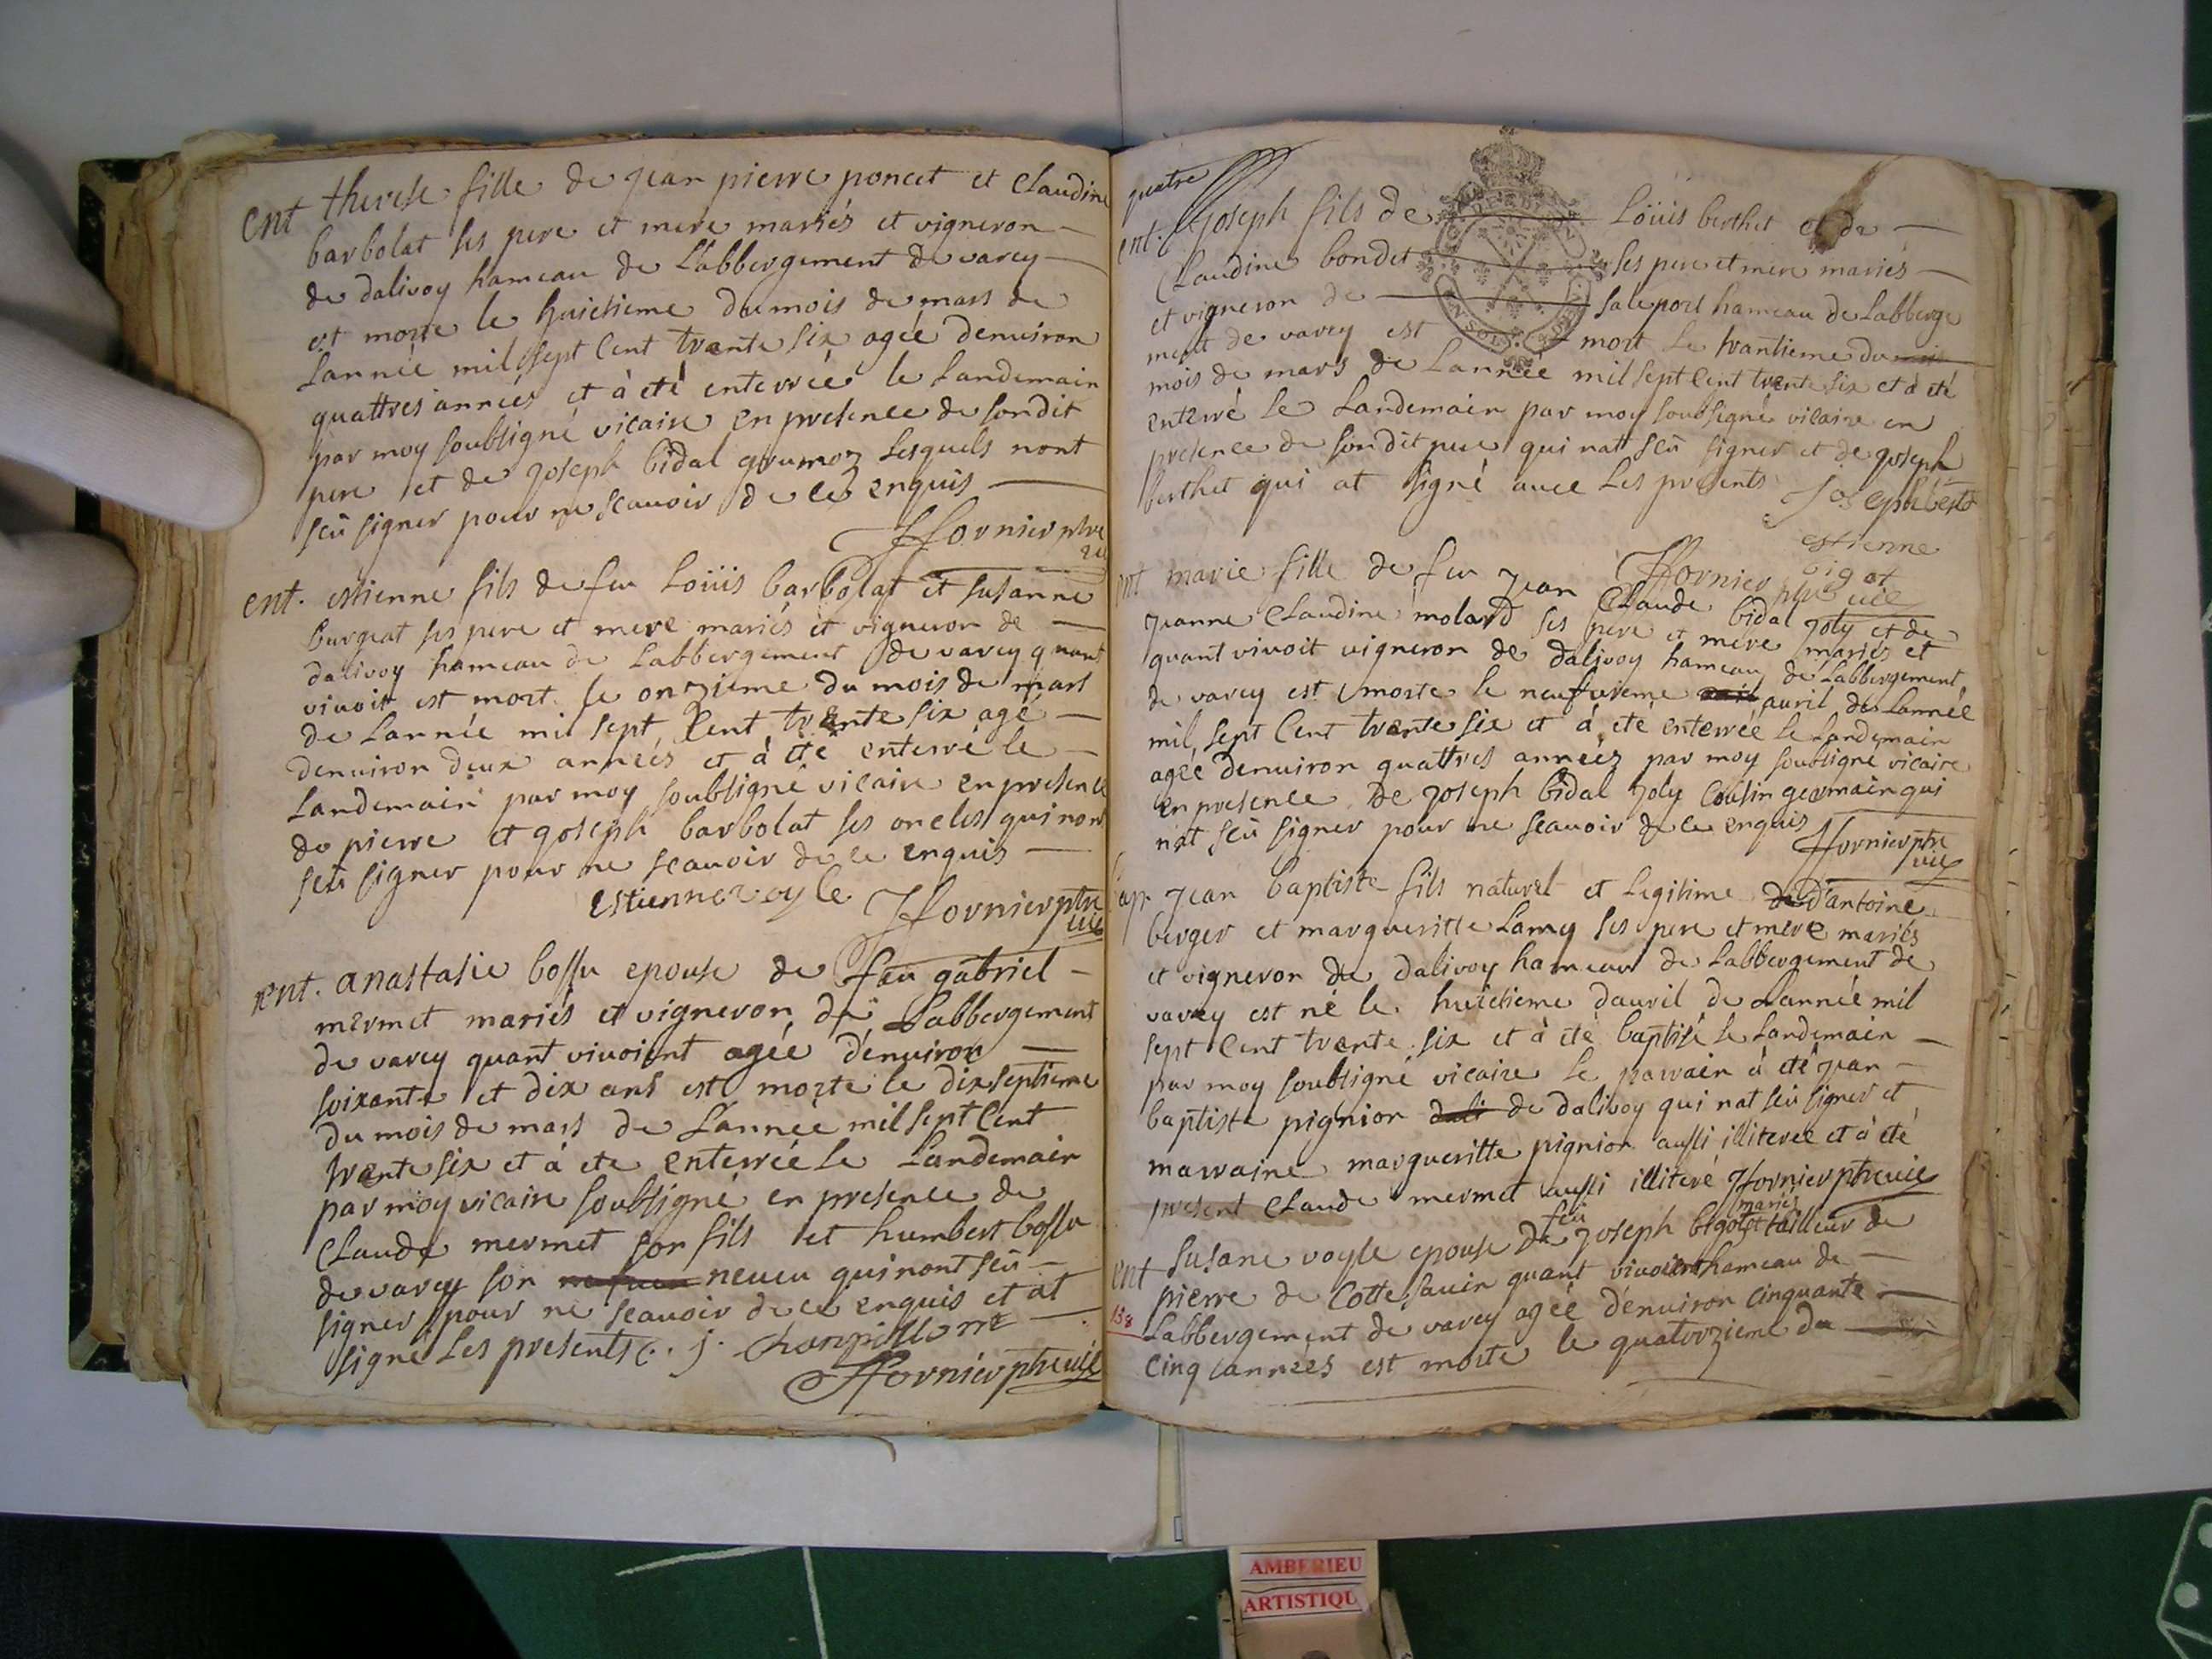 ent therese fille de jean pierre poncet et Claudine
barbolat ses pere et mere mariés et vigneron
de dalivoy hameau de Labbergement de varey
est morte le huictieme du mois de mars de
Lannée mil sept Cent trante six agée denuiron
quattres années et à eté enterrée le Landemain
par moy soubsigné vicaire en presence de sondit
pere et de joseph bidal grumoz Lesquels nont
sçu signer pour ne scauoir de ce enquis
Hornier ptre
vic
ent. estienne fils de feu Loüis barbolat et susanne
burgeat ses pere et mere mariés et vigneron de
dalivoy hameau de Labbergement de varey quant
vivoit est mort le onzieme du mois de mars
de Lannée mil sept Cent trente six agé
denuiron deux années et à eté enterré le
Landemain par moy soubsigné vicaire en presence
de pierre et joseph barbolat ses oncles qui nont
seu signer pour ne scauoir de ce enquis
Estienne voyle Hornier ptre
vic
ent. anastasie bossu epouse de feu gabriel
mermet mariés et vigneron de Labbergement
de varey quant vivoient agée d'enuiron
soixante et dix ans est morte le dixseptieme
du mois de mars de L'année mil sept Cent
trante six et à ete enterrée le Landemain
par moy vicaire soubsigné en presence de
Claude mermet son fils et humbert bossu
de varey son neueu qui nont seu
signer pour ne scauoir de ce enquis et at
signé Les presents C. j.
Hornier ptre vic
quatre
ent. joseph fils de Loüis berthet et de
Claudine bondet ses pere et mere mariés
et vigneron de saleport hameau de Labberge
ment de varey est mort Le trantieme du
mois de mars de Lannée mil sept Cent trente six et à eté
enterré le Landemain par moy soubsigné vicaire en
presence de sondit pere qui nat seu signer et de joseph
berthet qui at signé auec Les presents
estienne
bigot
Hornier ptre vic
ent marie fille de feu jean Claude bidal joly et de
jeanne Claudine molard ses pere et mere mariés et
quant vivoit vigneron de dalivoy hameau de Labbergement
de varey est morte le neufvieme auril de Lannée
mil sept Cent trante six et à eté enterrée le Landemain
agée denuiron quattres années par moy soubsigné vicaire
en presence de joseph bidal joly Cousin germain qui
nat seu signer pour ne scauoir de ce enquis
Hornier ptre
vic
bap. jean baptiste fils naturel et Legitime de d'antoine
berger et margueritte Lamy ses pere et mere mariés
et vigneron de dalivoy hameau de Labbergement de
varey est né le huictieme dauril de Lannée mil
sept Cent trente six et à eté baptisé le Landemain
par moy soubsigné vicaire Le parrain à eté jean
baptiste pignion dali de dalivoy qui nat seu signer et
marraine margueritte pignion aussi illiteree et à eté
present Claude mermet aussi illiteré Hornier ptre vic
ent susane voyle epouse de feu joseph bigot mariés et tailleur de
pierre de Cottesauin quant vivoient hameau de
158
Labbergement de varey agée d'enuiron cinquante
cinq années est morte le quatorzieme du
AMBERIEU
ARTISTIQU